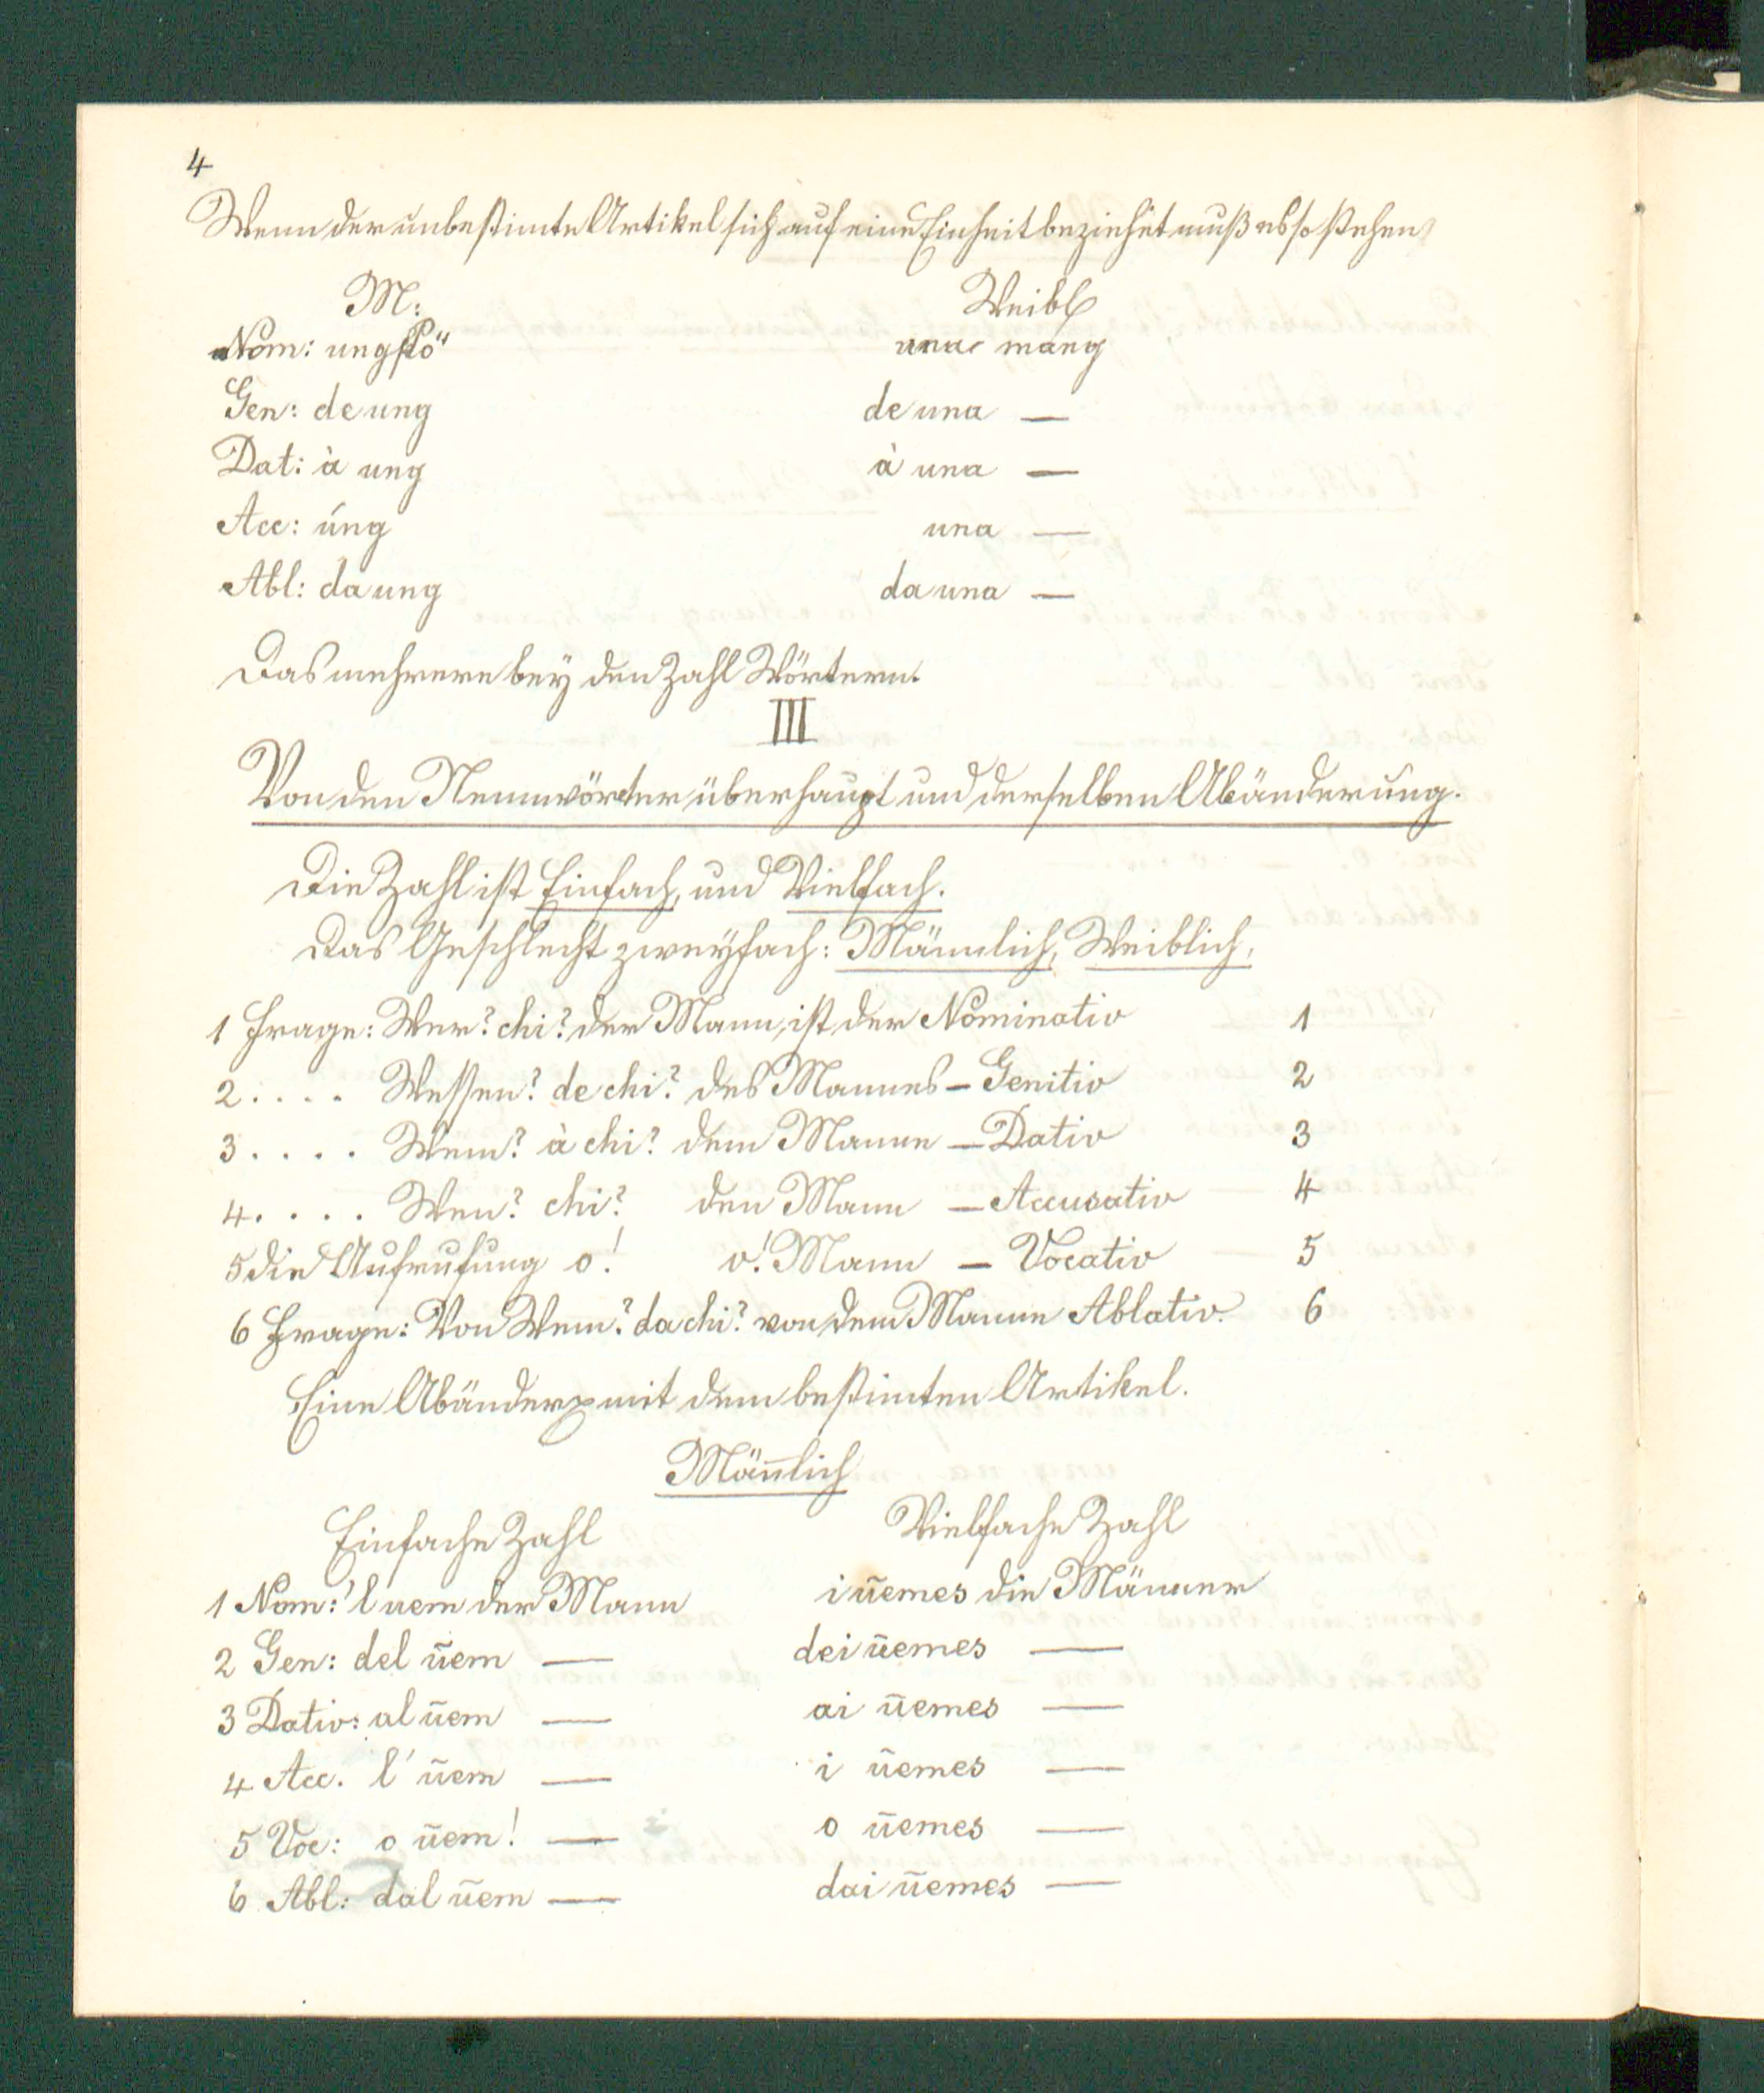 4
Wenn der unbestimte Artikel sich auf eine Einheit beziehet muß es so stehen
M: Weibl
Nom: ung pstö una mang
Gen: de ung de una —
Dat: à ung à una —
Acc: úng una —
Abl: da ung da una —
Das mehrere bey den Zahl Wörtern.
III
Von den Nennwörter überhaupt und derselben Abänderung.
Die Zahl ist Einfach, und Vielfach.
Das Geschlecht zweyfach: Männlich, Weiblich.
1 Frage: Wer? chi? der Mann, ist der Nominativ 1
2 . . . . Wessen? de chi? des Mannes – Genitiv 2
3 . . . . Wem? à chi? dem Manne – Dativ 3
4 . . . . Wen? chi? den Mann – Accusativ 4
5 die Aufrufung o! o! Mann – Vocativ 5
6 Frage: Von Wem? da chi? von dem Manne Ablativ. 6
Eine Abänder mit dem bestimten Artikel.
Män̄lich
Einfache Zahl Vielfache Zahl
1 Nom: 'l uem der Mann i ūemes die Männer
2 Gen: del ūem — dei ūemes —
3 Dativ: al ūem — ai ūemes —
4 Acc. l' ūem — i ūemes —
5 Voc: o ūem! — o ūemes —
6 Abl: dal ūem — dai ūemes —